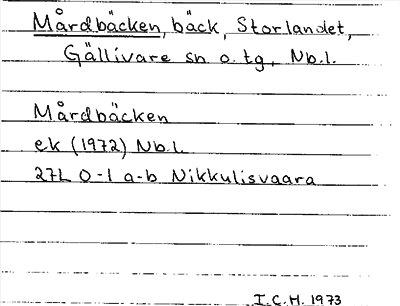 Mårdbäcken, bäck, Storlandet,
Gällivare sn o. tg, Nb.l.
Mårdbäcken
ek (1972) Nb.l.
27L 0-1 a-b Nikkulisvaara
I.C.H. 1973